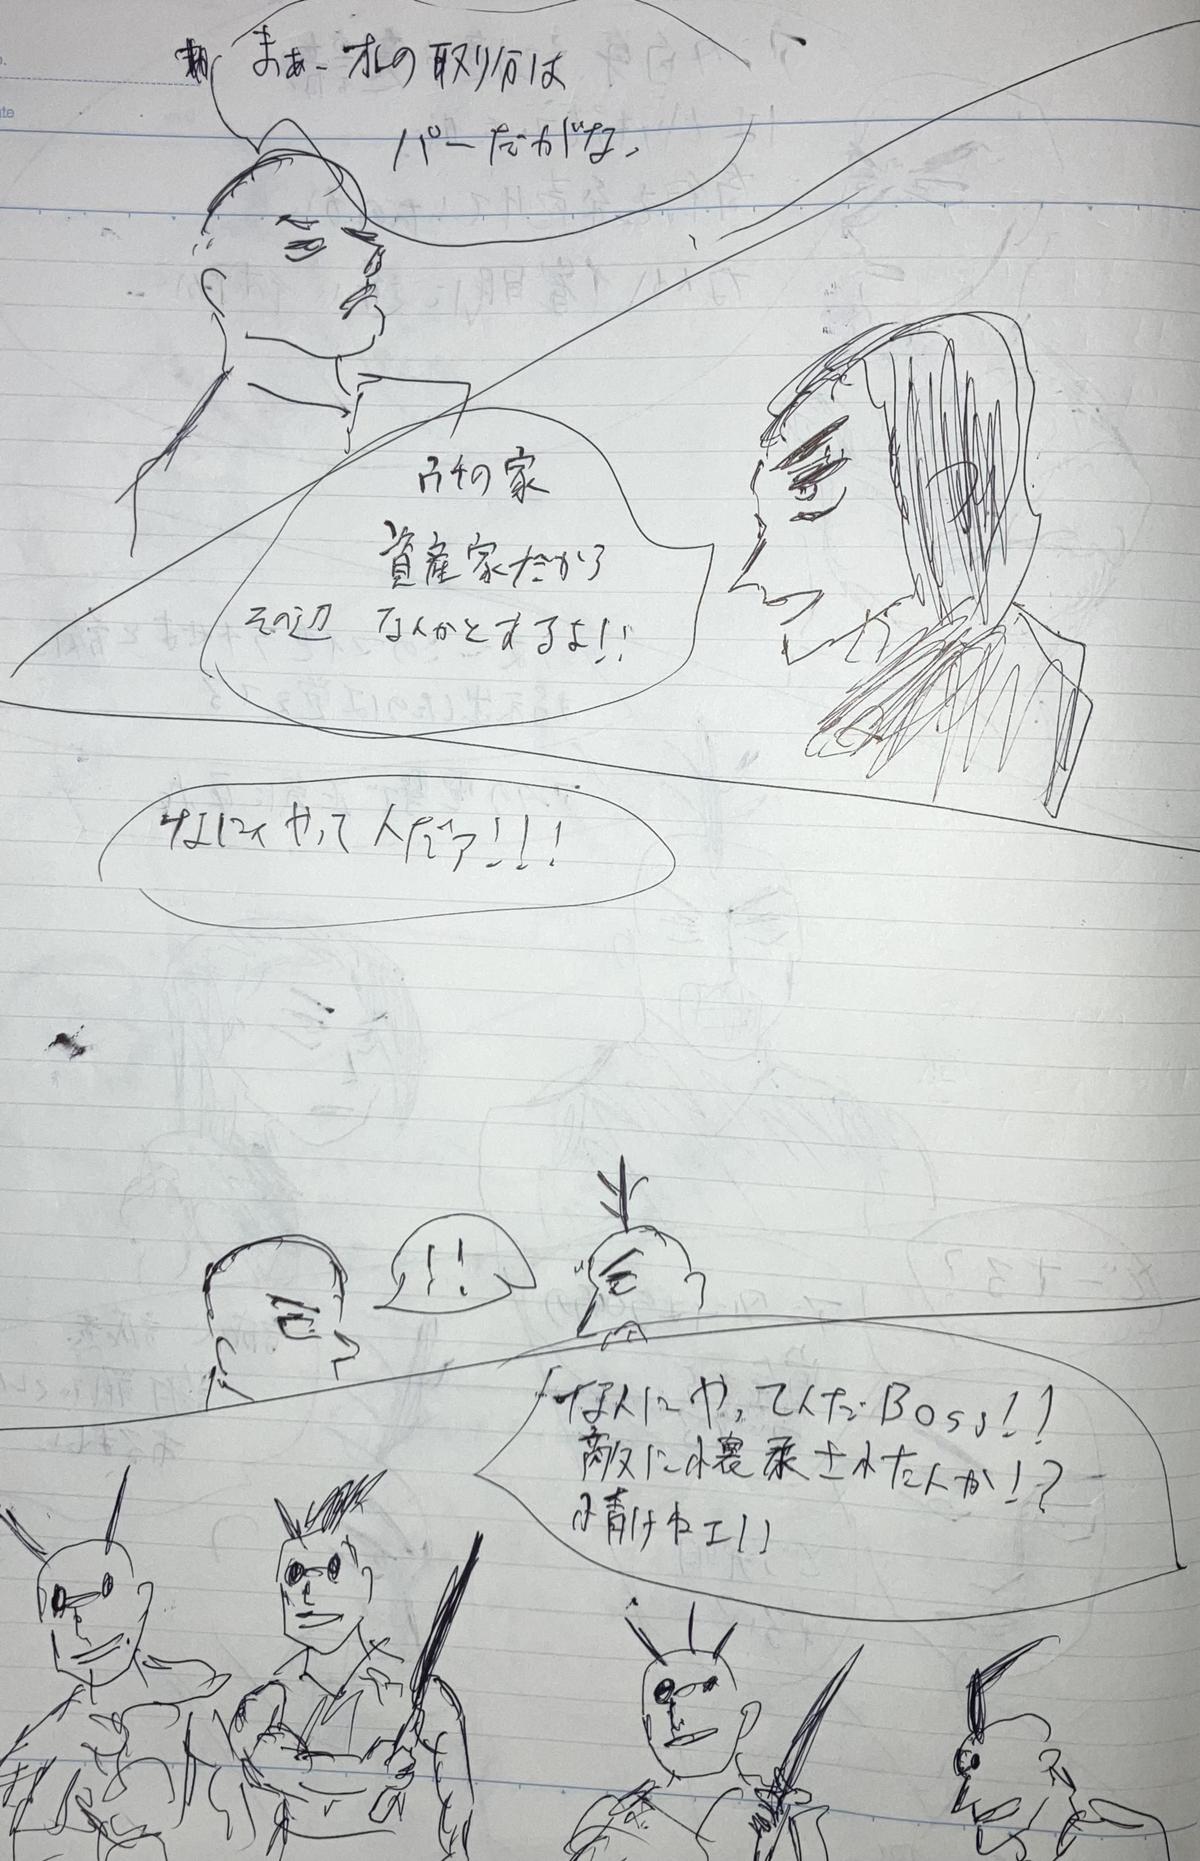 まぁー オレの取り分は
パーだがな、
ウチの家
資産家だから
その辺 なんかとするよ!!
なにやってんだァ!!!
!!
なんにやってんだBoss!!
敵に懐柔されたんか!?
情けねェ!!